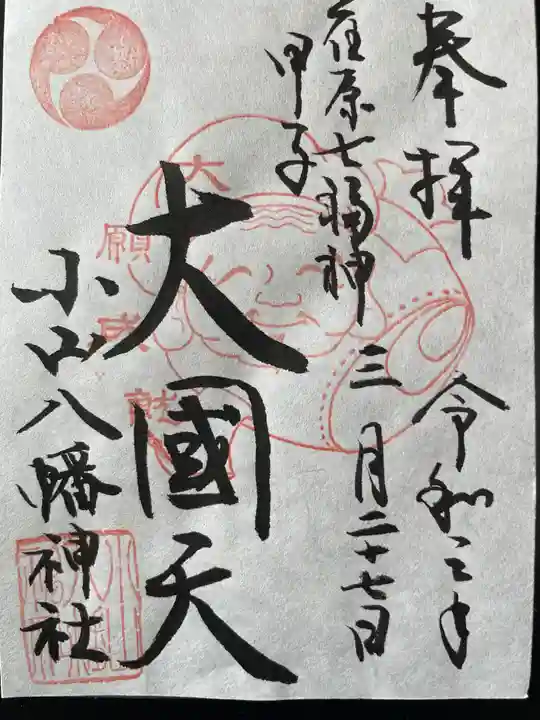 奉拝
令和三年
三月二十七日
荏原七福神
甲子
大國天
大願成就
小山八幡神社